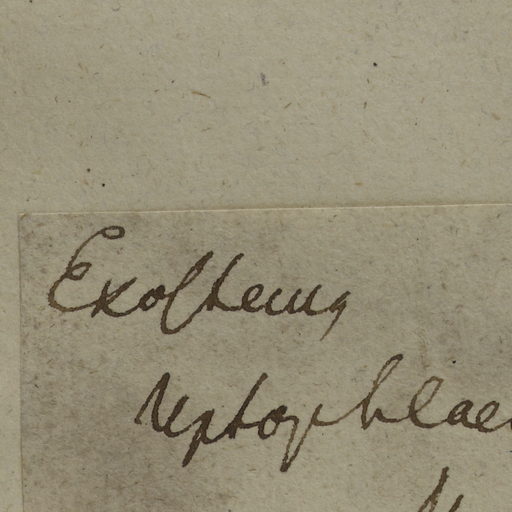 Exostema
leptophlae